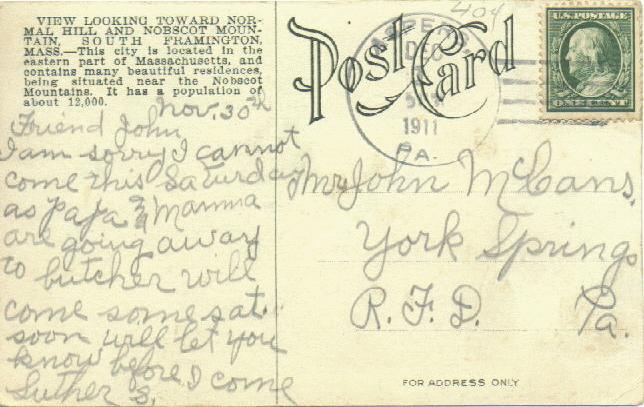 VIEW LOOKING TOWARD NOR-
MAL HILL AND NOBSCOT MOUN-
TAIN, SOUTH FRAMINGTON,
MASS.—This city is located in the
eastern part of Massachusetts, and
contains many beautiful residences,
being situated near the Nobscot
Mountains. It has a population of
about 12,000.
Nov. 30th
Friend John,
I am sorry I cannot
come this Saturday
as Papa & Mamma
are going away
to butcher will
come some sat.
soon will let you
know before I come
Luther S.
404
Post Card
DEC
1911
PA.
U.S. POSTAGE
ONE CENT
Mr John McCans.
York Springs
R. F. D. Pa.
FOR ADDRESS ONLY